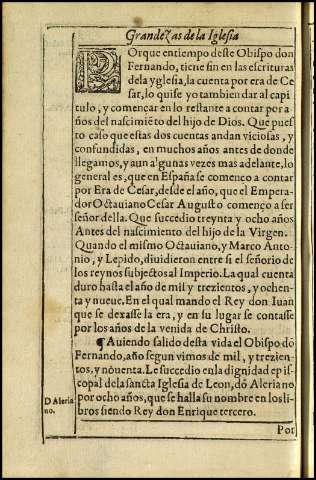 Grandezas de la Iglesia
POrque en tiempo deste Obispo don
Fernando, tiene fin en las escrituras
de la yglesia, la cuenta por era de Ce
sar, lo quise yo tambien dar al capi
tulo, y començar en lo restante a contar por a
ños del nascimiẽto del hijo de Dios. Que pues
to caso que estas dos cuentas andan viciosas, y
confundidas, en muchos años antes de donde
llegamos, y aun algunas vezes mas adelante, lo
general es, que en España se començo a contar
por Era de Cesar, desde el año, que el Empera-
dor Octauiano Cesar Augusto començo a ser
señor della. Que succedio treynta y ocho años
Antes del nascimiento del hijo de la Virgen.
Quando el mismo Octauiano, y Marco Anto-
nio, y Lepido, diuidieron entre si el señorio de
los reynos subjectos al Imperio. La qual cuenta
duro hasta el año de mil y trezientos, y ochen-
ta y nueue. En el qual mando el Rey don Iuan
que se dexasse la era, y en su lugar se contasse
por los años de la venida de Christo.
¶ Auiendo salido desta vida el Obispo dõ
Fernando, año segun vimos de mil, y trezien-
tos, y nouenta. Le succedio en la dignidad epis
copal de la sancta Iglesia de Leon, dõ Aleriano
por ocho años, que se halla su nombre en los li-
bros siendo Rey don Enrique tercero.
D Aleria
no.
Por